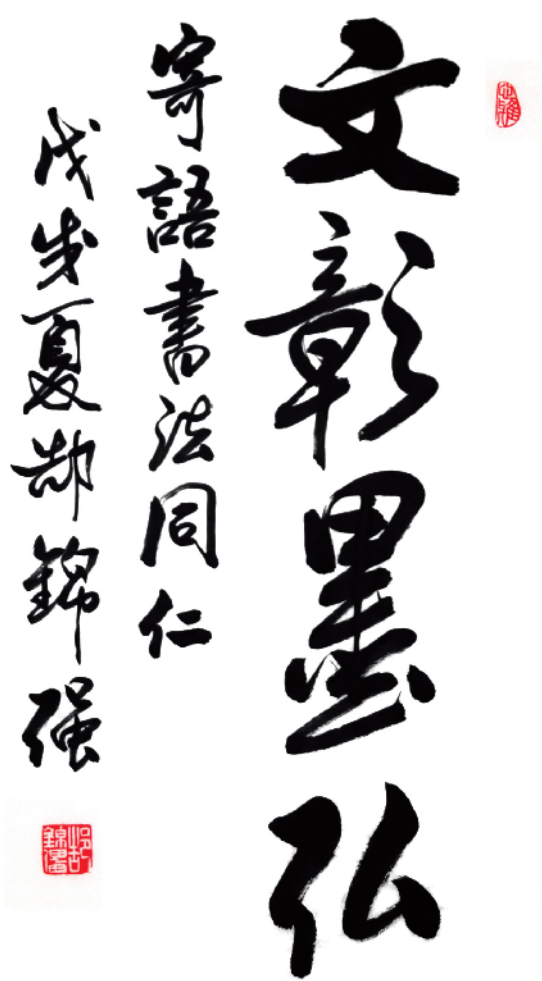 文彰墨弘
寄語書法同仁
戊戌夏郝錦强